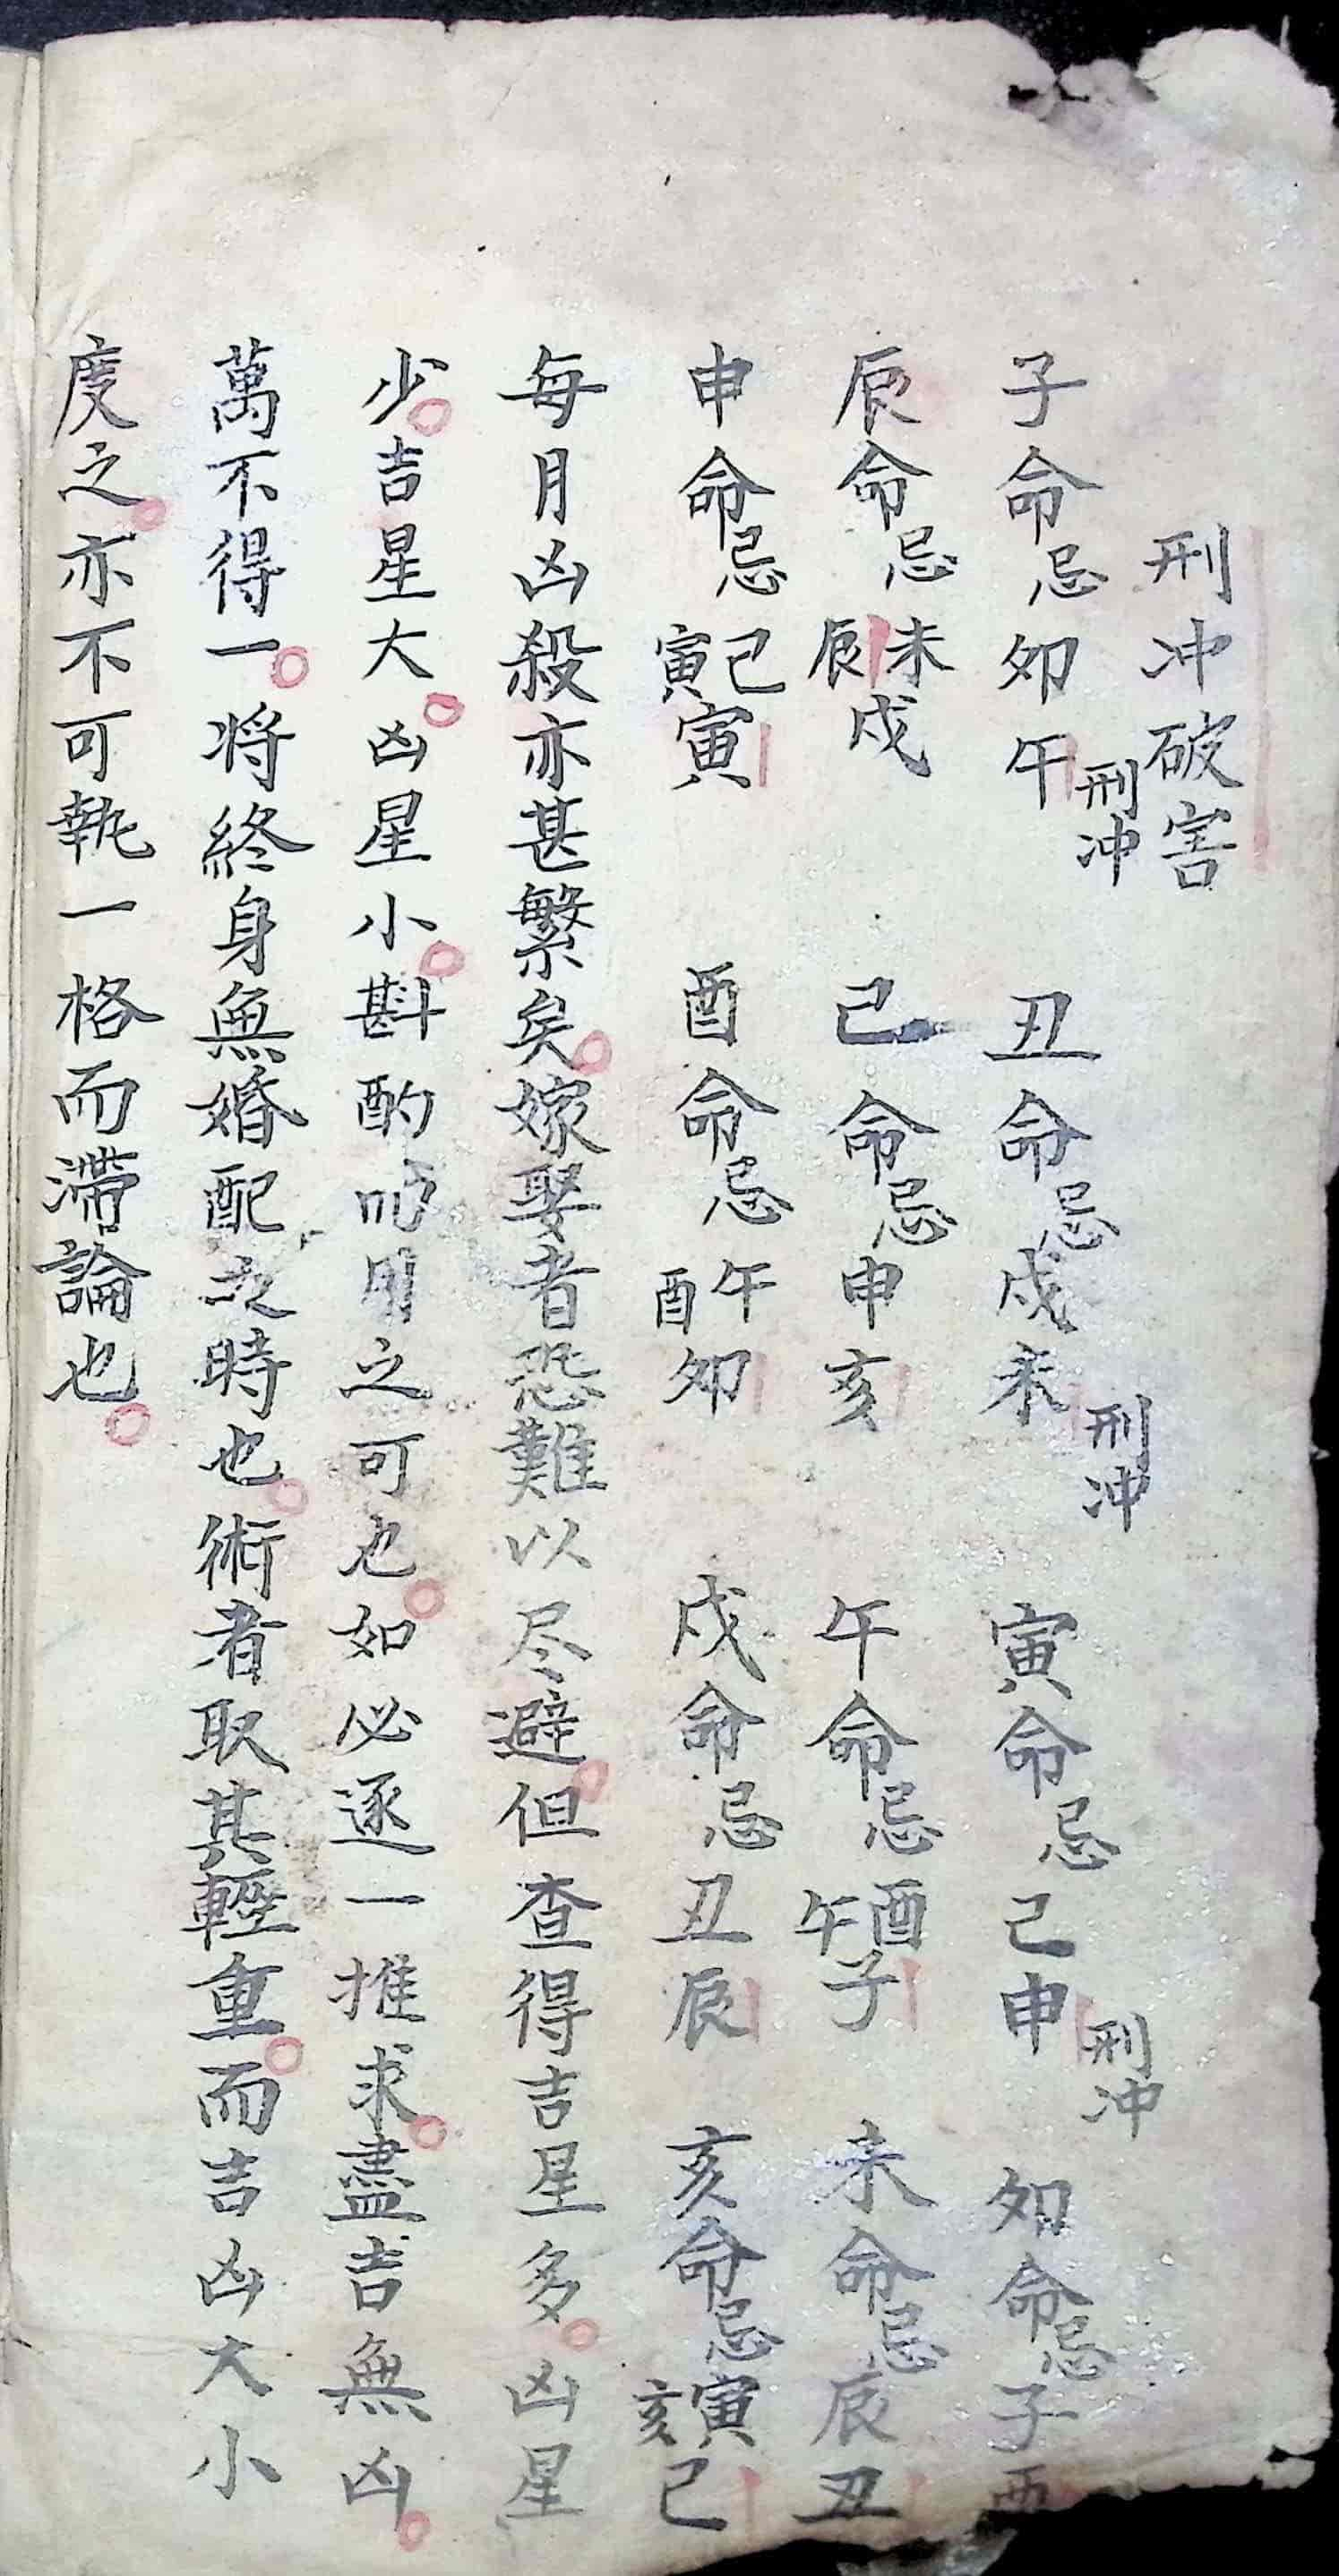 刑冲破害
子命忌卯午刑冲 丑命忌戌未刑冲 寅命忌己申刑冲 卯命忌子酉
辰命忌未辰戌 己命忌申亥 午命忌酉午子 未命忌辰丑
申命忌己寅寅 酉命忌午酉卯 戌命忌丑辰 亥命忌寅亥己
每月凶殺亦甚繁矣。嫁娶者恐難以尽避。但查得吉星多。凶星
少。吉星大。凶星小。斟酌而用之可也。如必逐一推求。盡吉無凶。
萬不得一。将終身無婚配之時也。術者取其輕重。而吉凶大小
度之。亦不可執一格而滯論也。